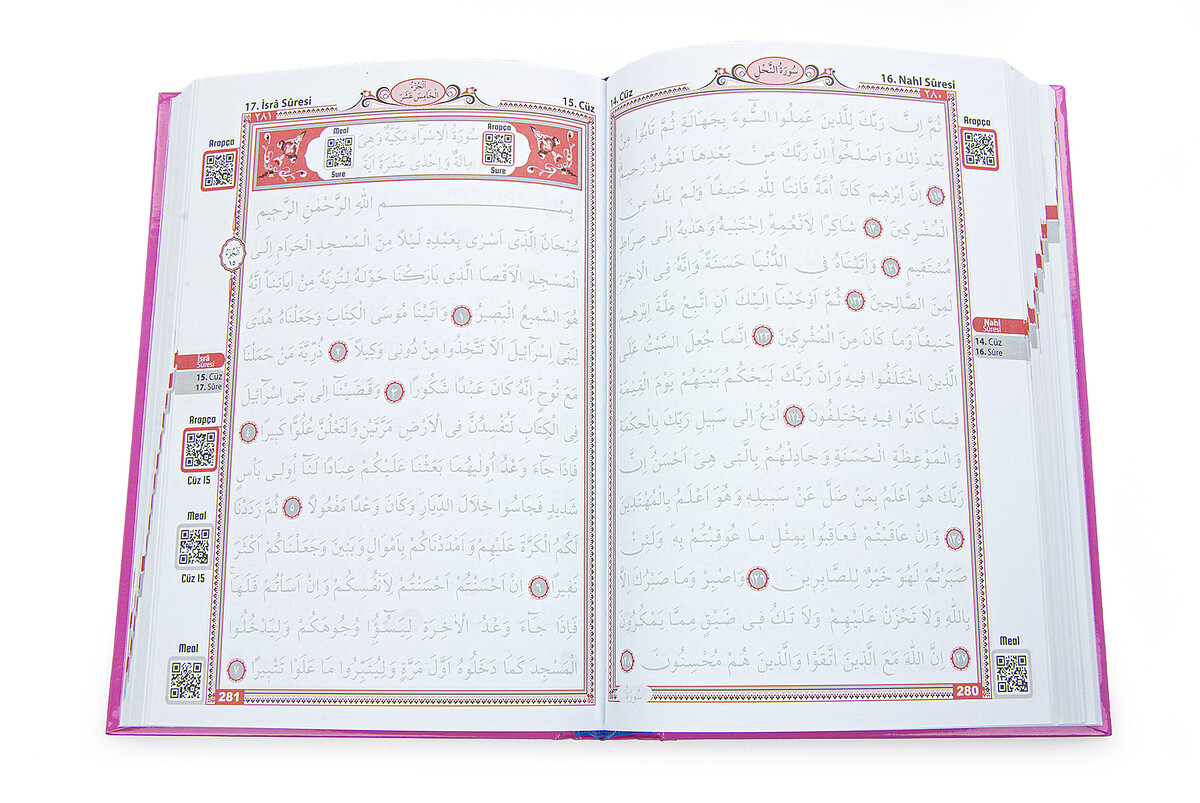 14. Cüz
سُورَةُ النَّحْلِ
16. Nahl Sûresi
٢٨٠
Arapça
ثُمَّ اِنَّ رَبَّكَ لِلَّذ۪ينَ عَمِلُوا السُّٓوءَ بِجَهَالَةٍ ثُمَّ تَابُوا مِنْ
بَعْدِ ذٰلِكَ وَاَصْلَحُٓوا اِنَّ رَبَّكَ مِنْ بَعْدِهَا لَغَفُورٌ رَح۪يمٌ
﴿١١٩﴾ اِنَّ اِبْرٰه۪يمَ كَانَ اُمَّةً قَانِتًا لِلّٰهِ حَن۪يفًا وَلَمْ يَكُ مِنَ
الْمُشْرِك۪ينَ ﴿١٢٠﴾ شَاكِرًا لِاَنْعُمِهِ اِجْتَبٰيهُ وَهَدٰيهُ اِلٰى صِرَاطٍ
مُسْتَق۪يمٍ ﴿١٢١﴾ وَاٰتَيْنَاهُ فِي الدُّنْيَا حَسَنَةً وَاِنَّهُ فِي الْاٰخِرَةِ
لَمِنَ الصَّالِح۪ينَ ﴿١٢٢﴾ ثُمَّ اَوْحَيْنَٓا اِلَيْكَ اَنِ اتَّبِعْ مِلَّةَ اِبْرٰه۪يمَ
حَن۪يفًا وَمَا كَانَ مِنَ الْمُشْرِك۪ينَ ﴿١٢٣﴾ اِنَّمَا جُعِلَ السَّبْتُ عَلَى
الَّذ۪ينَ اخْتَلَفُوا ف۪يهِ وَاِنَّ رَبَّكَ لَيَحْكُمُ بَيْنَهُمْ يَوْمَ الْقِيٰمَةِ
ف۪يمَا كَانُوا ف۪يهِ يَخْتَلِفُونَ ﴿١٢٤﴾ اُدْعُ اِلٰى سَب۪يلِ رَبِّكَ بِالْحِكْمَةِ
وَالْمَوْعِظَةِ الْحَسَنَةِ وَجَادِلْهُمْ بِالَّت۪ي هِيَ اَحْسَنُ اِنَّ
رَبَّكَ هُوَ اَعْلَمُ بِمَنْ ضَلَّ عَنْ سَب۪يلِه۪ وَهُوَ اَعْلَمُ بِالْمُهْتَد۪ينَ
﴿١٢٥﴾ وَاِنْ عَاقَبْتُمْ فَعَاقِبُوا بِمِثْلِ مَا عُوقِبْتُمْ بِه۪ وَلَئِنْ
صَبَرْتُمْ لَهُوَ خَيْرٌ لِلصَّابِر۪ينَ ﴿١٢٦﴾ وَاصْبِرْ وَمَا صَبْرُكَ اِلَّا
بِاللّٰهِ وَلَا تَحْزَنْ عَلَيْهِمْ وَلَا تَكُ ف۪ي ضَيْقٍ مِمَّا يَمْكُرُونَ
﴿١٢٧﴾ اِنَّ اللّٰهَ مَعَ الَّذ۪ينَ اتَّقَوْا وَالَّذ۪ينَ هُمْ مُحْسِنُونَ ﴿١٢٨﴾
Nahl
Sûresi
14. Cüz
16. Sûre
Meal
سُورَةُ
280
17. İsrâ Sûresi
٢٨١
اَلْجُزْءُ
الْخَامِسُ عَشَرَ
15. Cüz
Arapça
Arapça
Sure
سُورَةُ الْاِسْرَاءِ مَكِّيَّةٌ وَهِيَ
مِائَةٌ وَاِحْدٰى عَشْرَةَ اٰيَةً
Meal
Sure
بِسْمِ اللّٰهِ الرَّحْمٰنِ الرَّح۪يمِ
سُبْحَانَ الَّذ۪ٓي اَسْرٰى بِعَبْدِه۪ لَيْلًا مِنَ الْمَسْجِدِ الْحَرَامِ اِلَى
الْمَسْجِدِ الْاَقْصَا الَّذ۪ي بَارَكْنَا حَوْلَهُ لِنُرِيَهُ مِنْ اٰيَاتِنَا اِنَّهُ
هُوَ السَّم۪يعُ الْبَص۪يرُ ﴿١﴾ وَاٰتَيْنَا مُوسَى الْكِتَابَ وَجَعَلْنَاهُ هُدًى
لِبَن۪ٓي اِسْرَٓائ۪يلَ اَلَّا تَتَّخِذُوا مِنْ دُون۪ي وَك۪يلًا ﴿٢﴾ ذُرِّيَّةَ مَنْ حَمَلْنَا
مَعَ نُوحٍ اِنَّهُ كَانَ عَبْدًا شَكُورًا ﴿٣﴾ وَقَضَيْنَٓا اِلٰى بَن۪ٓي اِسْرَٓائ۪يلَ
فِي الْكِتَابِ لَتُفْسِدُنَّ فِي الْاَرْضِ مَرَّتَيْنِ وَلَتَعْلُنَّ عُلُوًّا كَب۪يرًا ﴿٤﴾
فَاِذَا جَٓاءَ وَعْدُ اُو۫لٰيهُمَا بَعَثْنَا عَلَيْكُمْ عِبَادًا لَنَٓا اُو۬ل۪ي بَأْسٍ
شَد۪يدٍ فَجَاسُوا خِلَالَ الدِّيَارِ وَكَانَ وَعْدًا مَفْعُولًا ﴿٥﴾ ثُمَّ رَدَدْنَا
لَكُمُ الْكَرَّةَ عَلَيْهِمْ وَاَمْدَدْنَاكُمْ بِاَمْوَالٍ وَبَن۪ينَ وَجَعَلْنَاكُمْ اَكْثَرَ
نَف۪يرًا ﴿٦﴾ اِنْ اَحْسَنْتُمْ اَحْسَنْتُمْ لِاَنْفُسِكُمْ وَاِنْ اَسَأْتُمْ فَلَهَا
فَاِذَا جَٓاءَ وَعْدُ الْاٰخِرَةِ لِيَسُٓؤُ۫ا وُجُوهَكُمْ وَلِيَدْخُلُوا
الْمَسْجِدَ كَمَا دَخَلُوهُ اَوَّلَ مَرَّةٍ وَلِيُتَبِّرُوا مَا عَلَوْا تَتْب۪يرًا ﴿٧﴾
اَلْجُزْءُ
١٥
İsrâ
Sûresi
15. Cüz
17. Sûre
Arapça
Cüz 15
Meal
Cüz 15
Meal
281